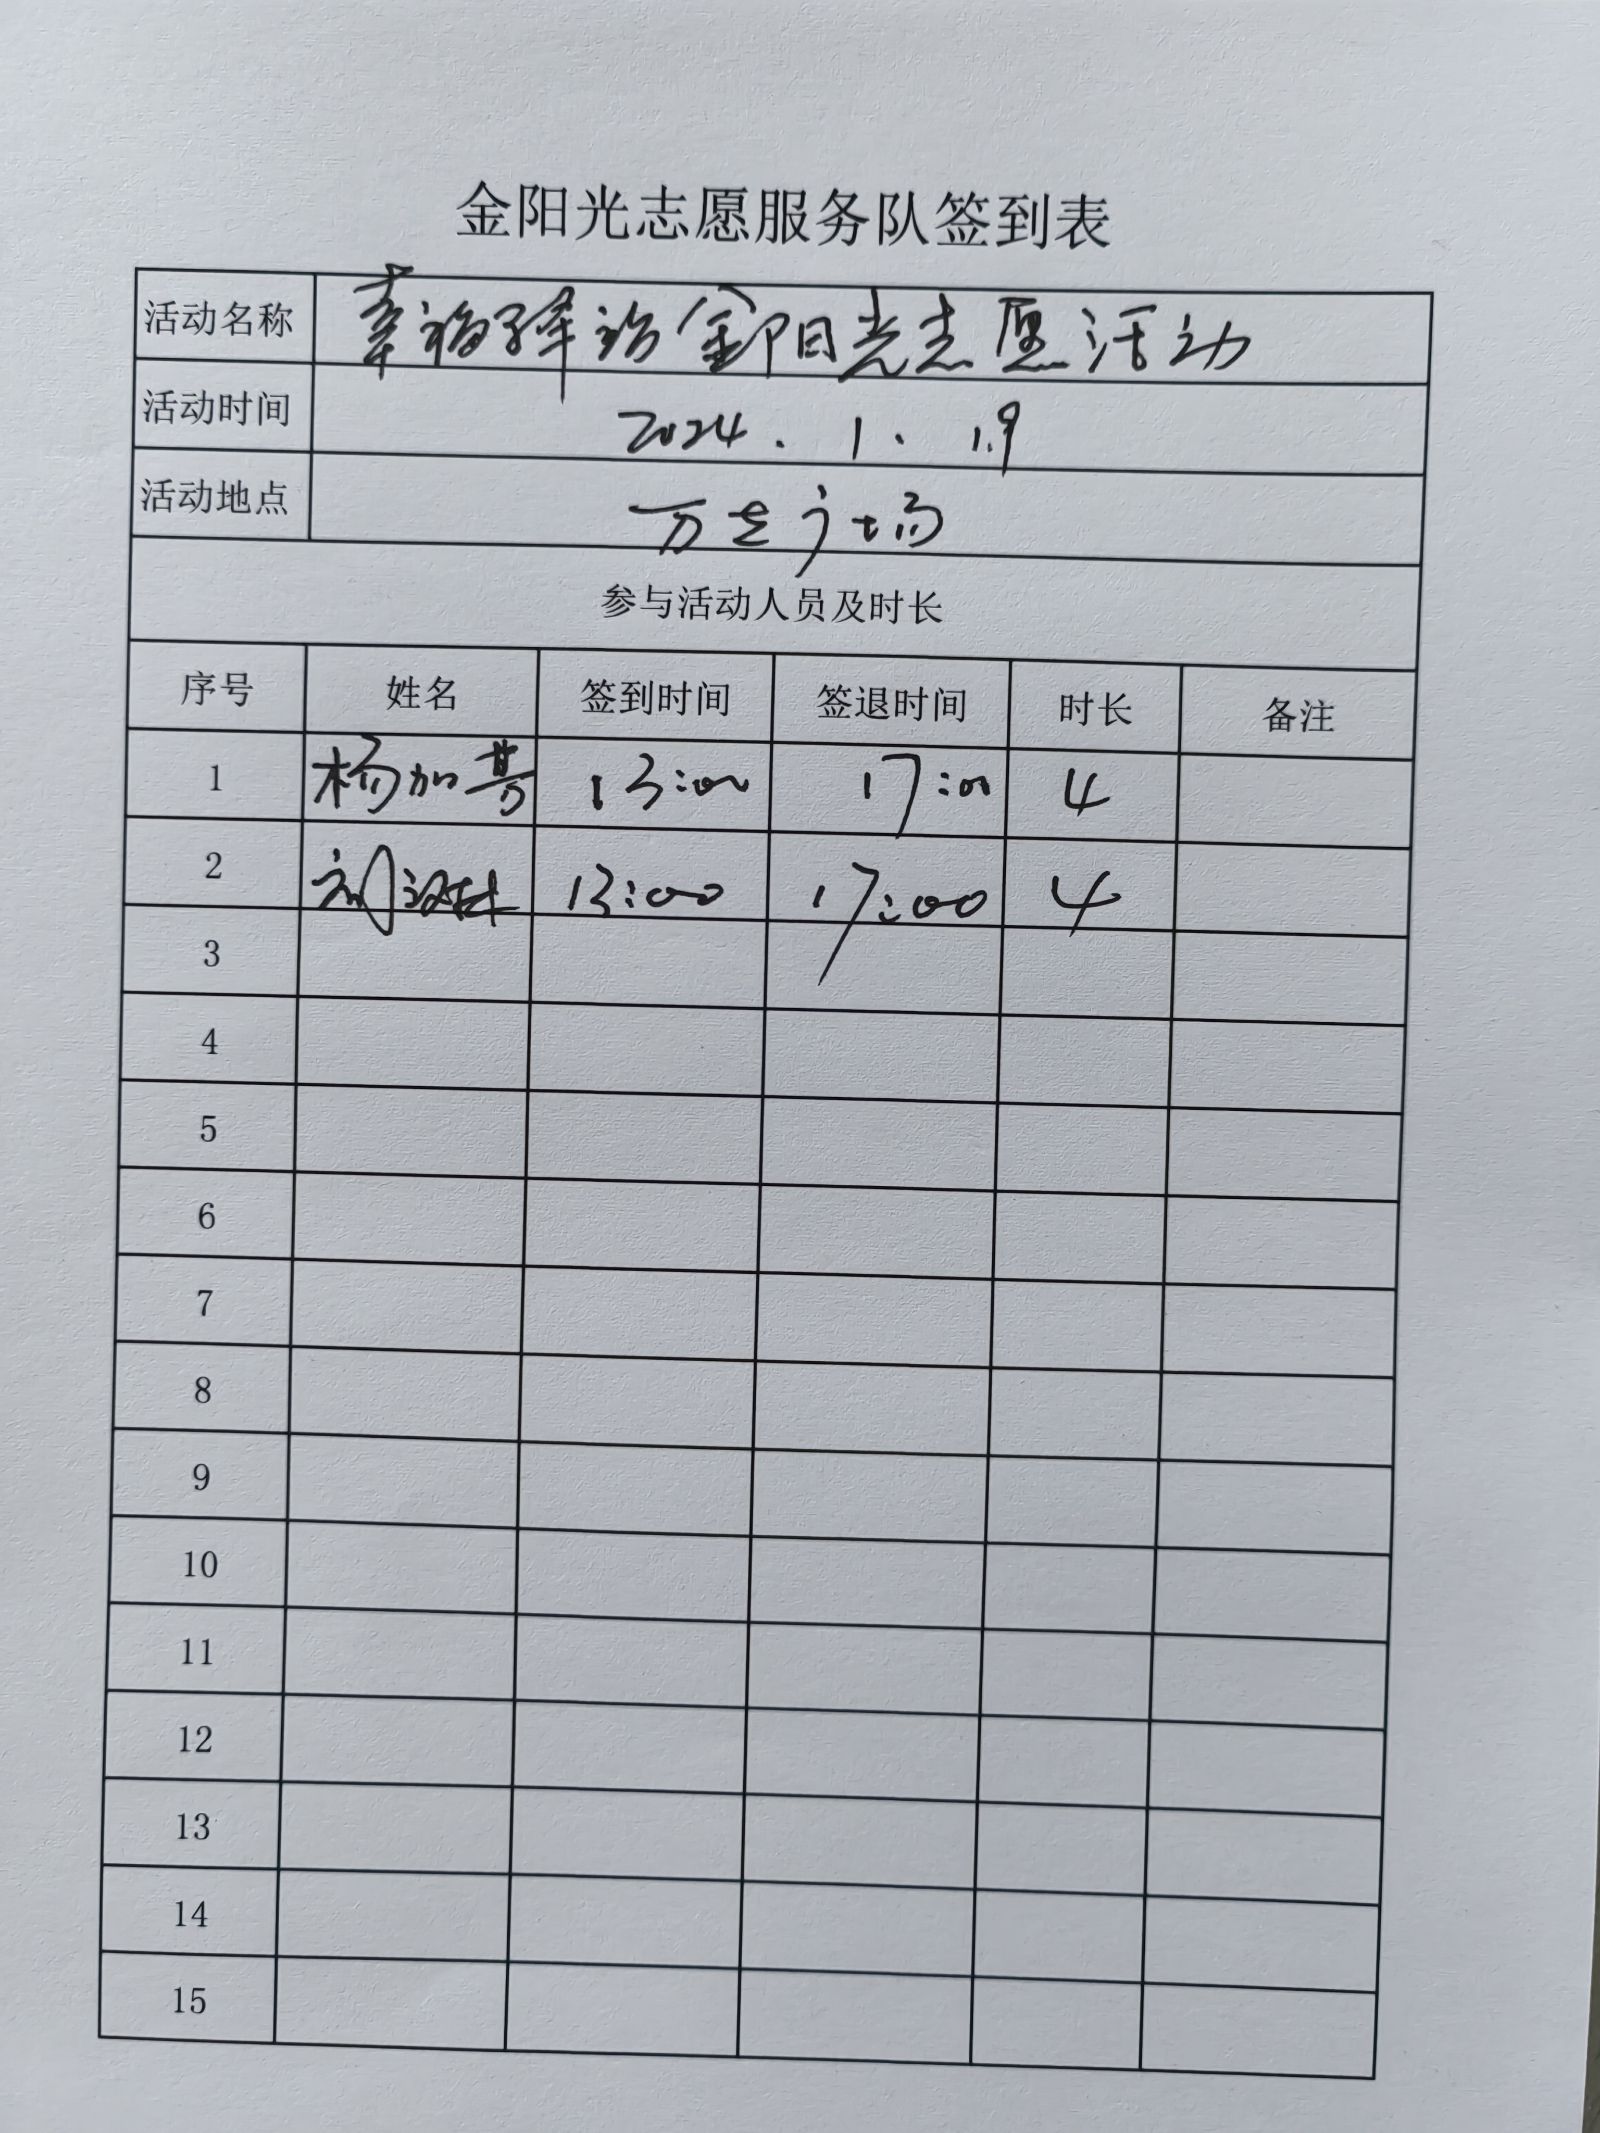 金阳光志愿服务队签到表
活动名称 幸福驿站金阳光志愿活动
活动时间 2024.1.19
活动地点 万达广场
参与活动人员及时长
序号 姓名 签到时间 签退时间 时长 备注
1 杨加 13:00 17:00 4
2 刘 13:00 17:00 4
3
4
5
6
7
8
9
10
11
12
13
14
15